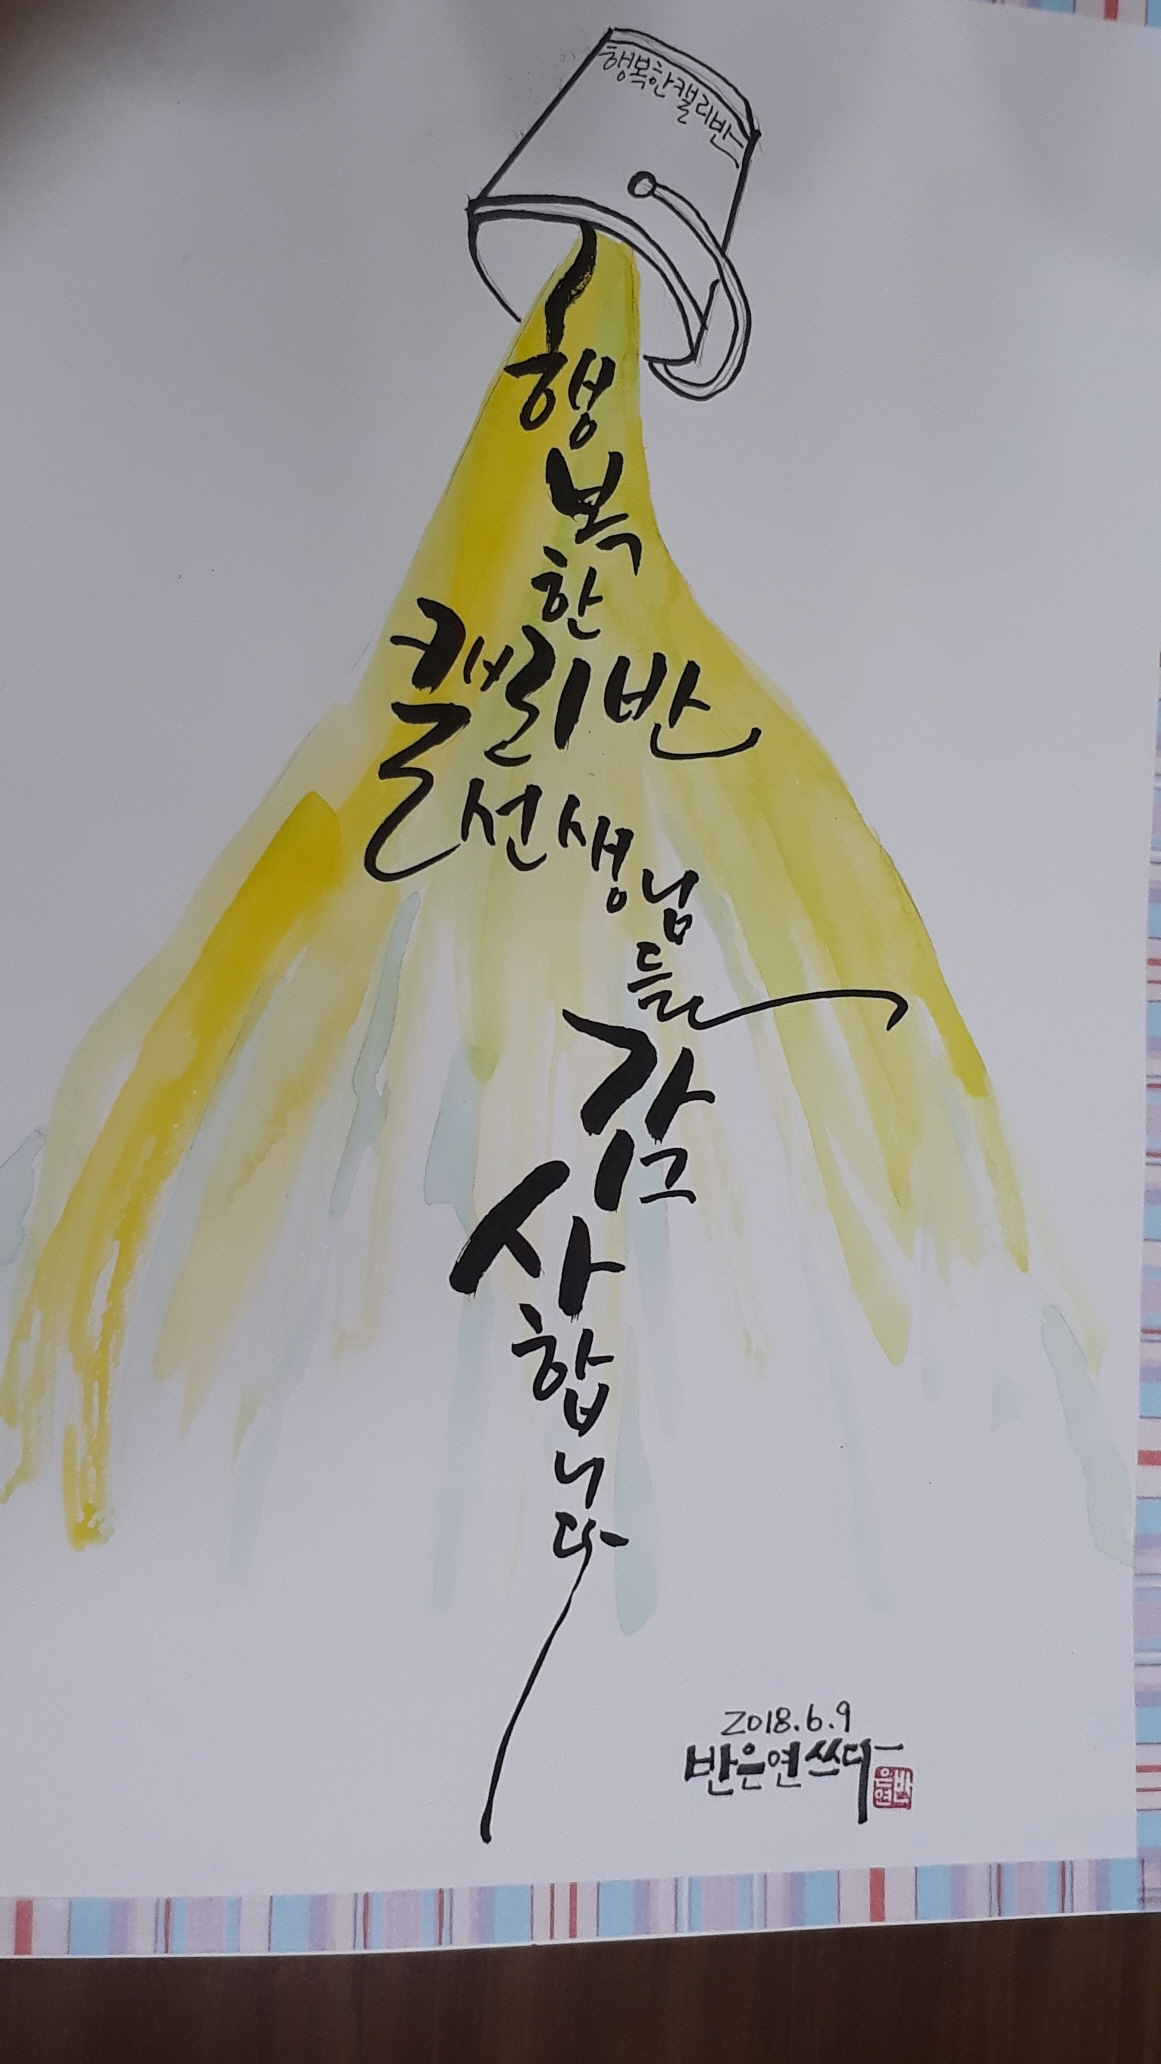 행복한캘리반
행
복
한
캘리반
선생님
들
감
사
합
니
다
2018.6.9
반은연쓰다
은연
반